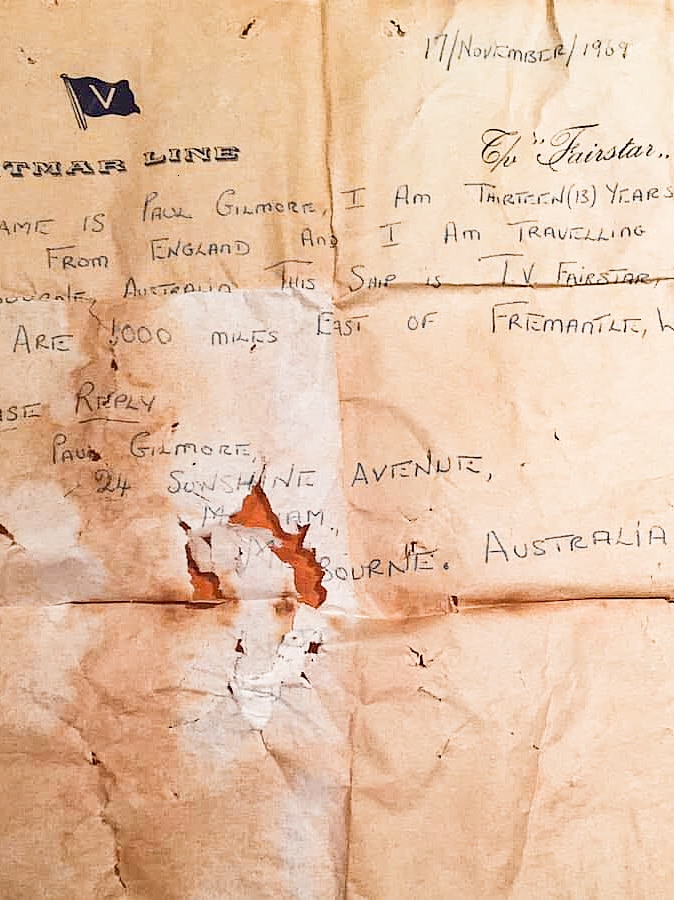 17/NOVEMBER/1969
V
TMAR LINE
T/v "Fairstar"
AME IS PAUL GILMORE, I AM THIRTEEN (13) YEARS
FROM ENGLAND AND I AM TRAVELLING
BOURNE, AUSTRALIA THIS SHIP IS T.V. FAIRSTAR,
ARE 1000 MILES EAST OF FREMANTLE, W
ASE REPLY
PAUL GILMORE,
24 SUNSHINE AVENUE,
M AM,
M BOURNE. AUSTRALIA